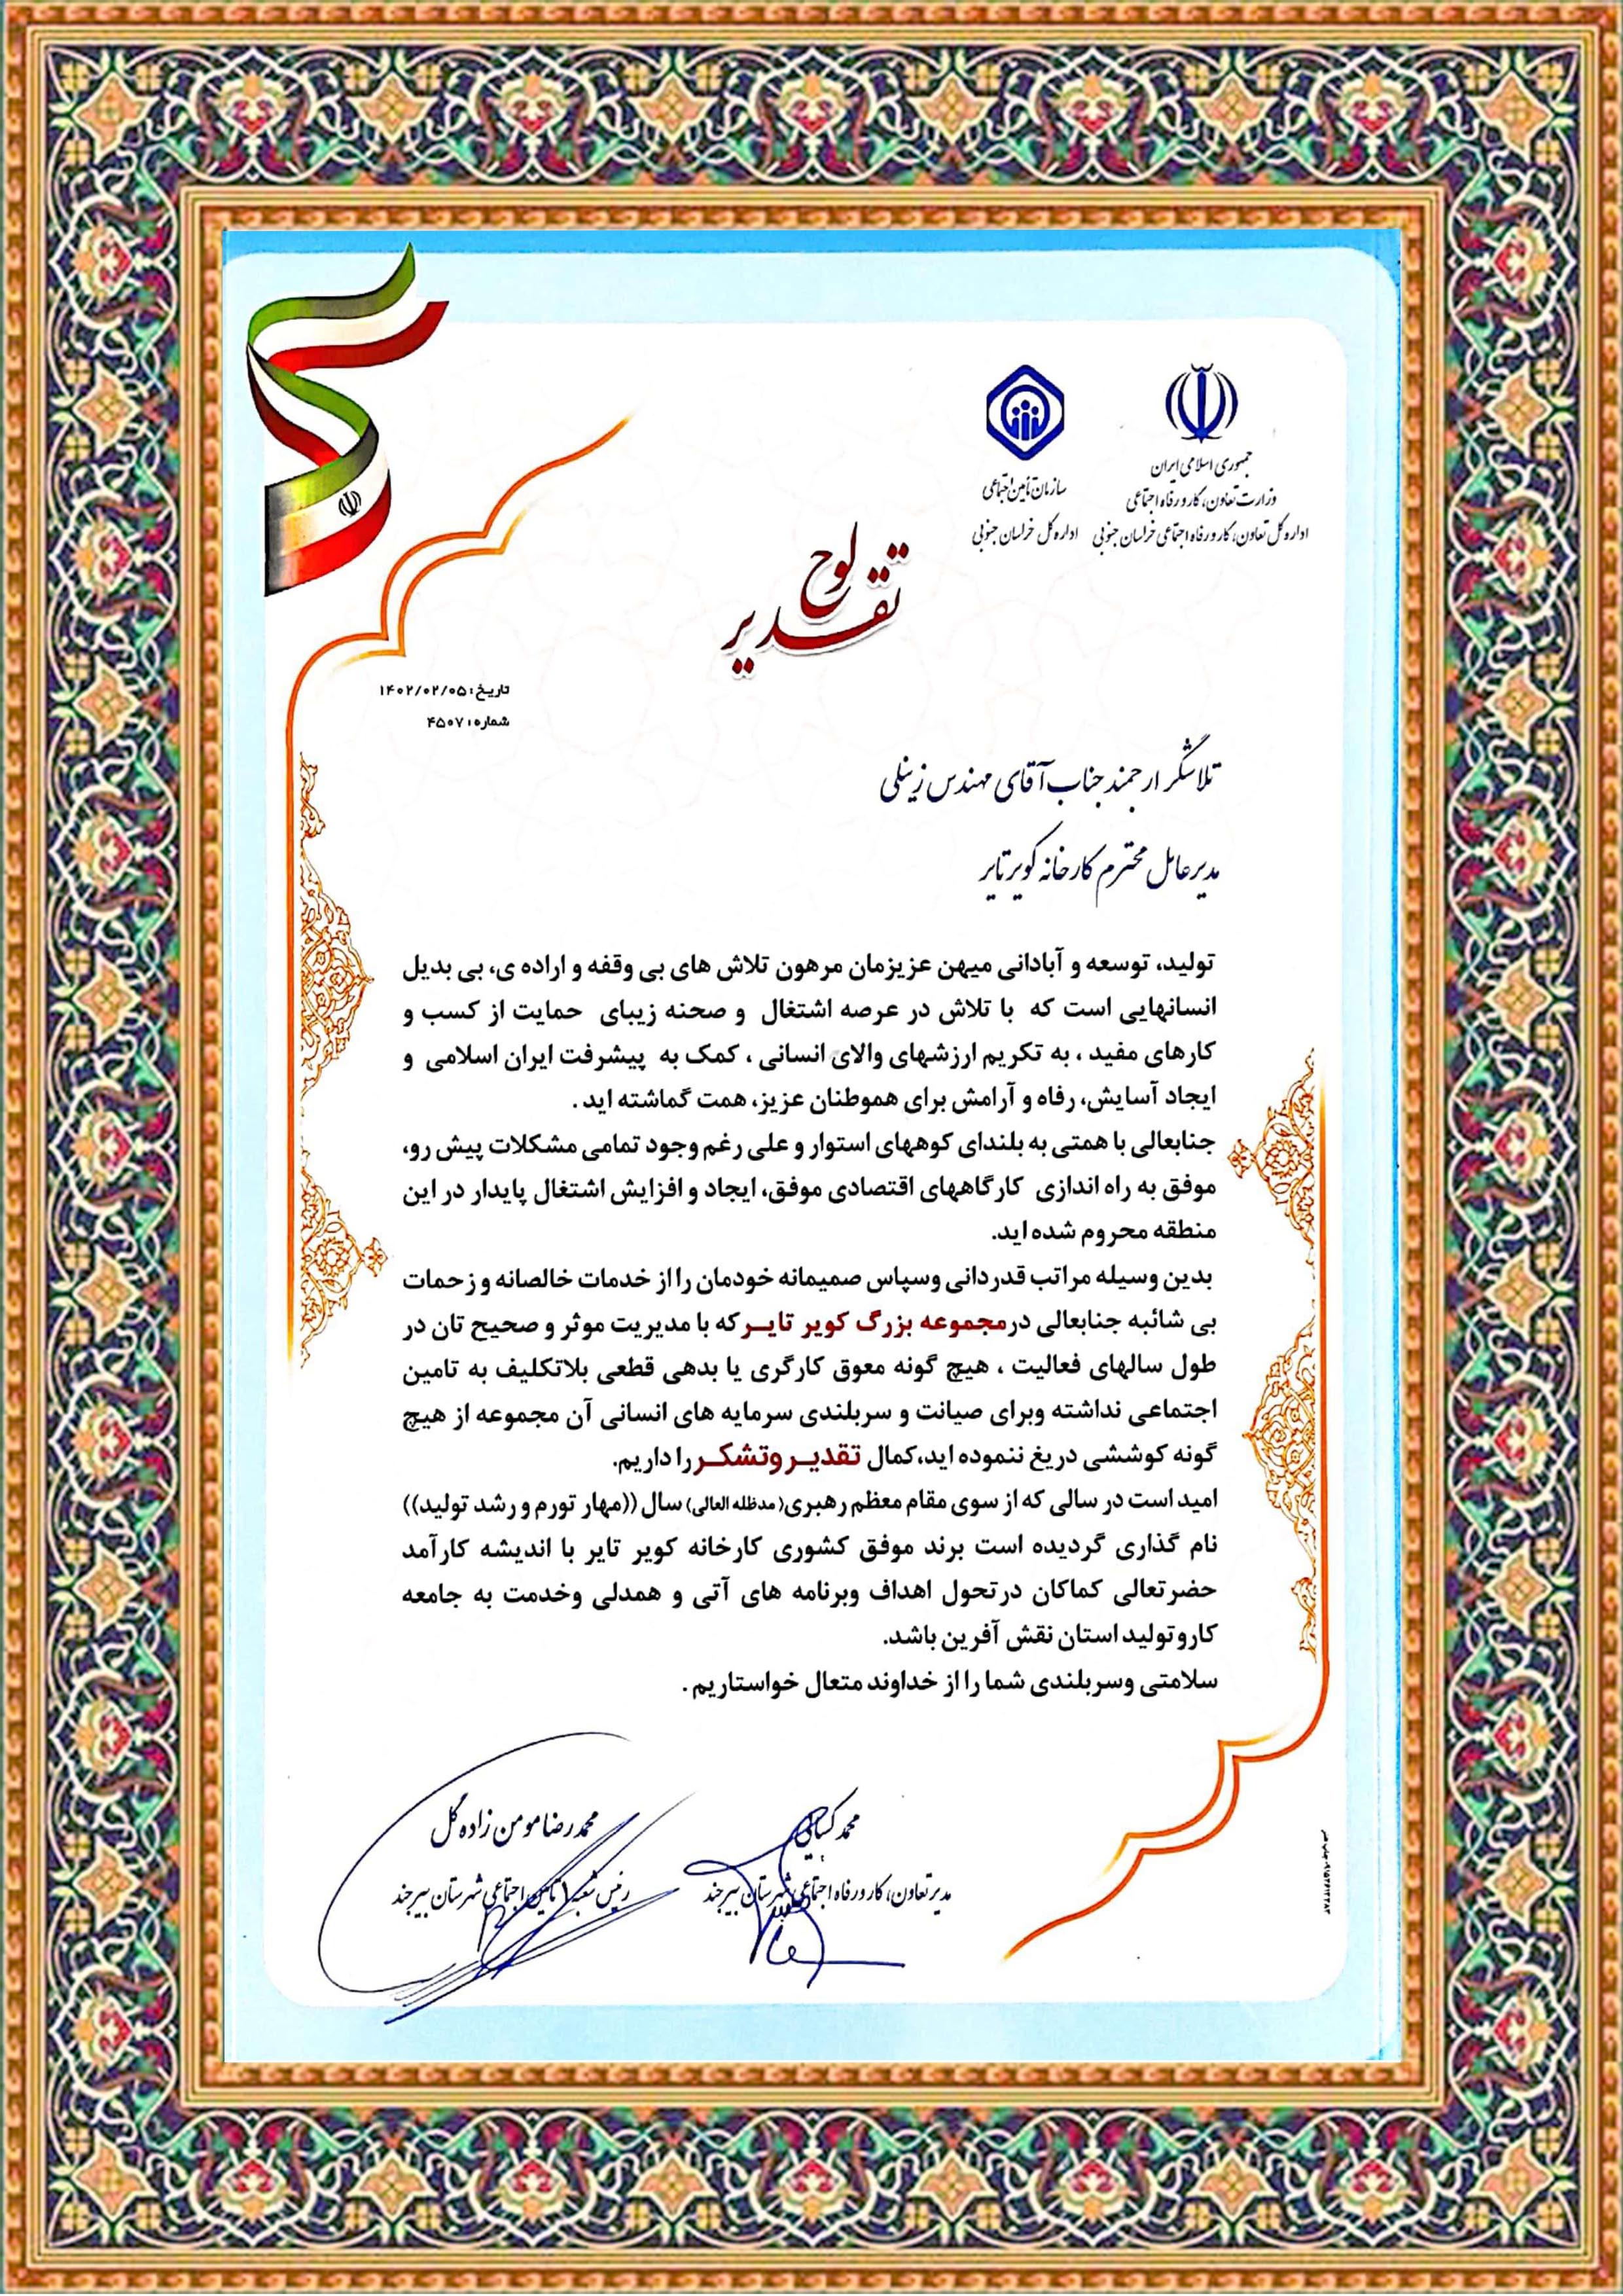 جمهوری اسلامی ایران
وزارت تعاون، کار و رفاه اجتماعی
اداره کل تعاون، کار و رفاه اجتماعی خراسان جنوبی
سازمان تأمین اجتماعی
اداره کل خراسان جنوبی
لوح
تقدیر
تاریخ: ۱۴۰۲/۰۲/۰۵
شماره: ۴۵۰۷
تلاشگر ارجمند جناب آقای مهندس زینلی
مدیرعامل محترم کارخانه کویر تایر
تولید، توسعه و آبادانی میهن عزیزمان مرهون تلاش های بی وقفه و اراده ی، بی بدیل
انسانهایی است که با تلاش در عرصه اشتغال و صحنه زیبای حمایت از کسب و
کارهای مفید ، به تکریم ارزشهای والای انسانی ، کمک به پیشرفت ایران اسلامی و
ایجاد آسایش، رفاه و آرامش برای هموطنان عزیز، همت گماشته اید .
جنابعالی با همتی به بلندای کوههای استوار و علی رغم وجود تمامی مشکلات پیش رو،
موفق به راه اندازی کارگاههای اقتصادی موفق، ایجاد و افزایش اشتغال پایدار در این
منطقه محروم شده اید.
بدین وسیله مراتب قدردانی وسپاس صمیمانه خودمان را از خدمات خالصانه و زحمات
بی شائبه جنابعالی در مجموعه بزرگ کویر تایـر که با مدیریت موثر و صحیح تان در
طول سالهای فعالیت ، هیچ گونه معوق کارگری یا بدهی قطعی بلاتکلیف به تامین
اجتماعی نداشته وبرای صیانت و سربلندی سرمایه های انسانی آن مجموعه از هیچ
گونه کوششی دریغ ننموده اید،کمال تقدیـر وتشکـر را داریم.
امید است در سالی که از سوی مقام معظم رهبری(مدظله العالی) سال ((مهار تورم و رشد تولید))
نام گذاری گردیده است برند موفق کشوری کارخانه کویر تایر با اندیشه کارآمد
حضرتعالی کماکان درتحول اهداف وبرنامه های آتی و همدلی وخدمت به جامعه
کار و تولید استان نقش آفرین باشد.
سلامتی وسربلندی شما را از خداوند متعال خواستاریم .
محمد
مدیر تعاون، کار و رفاه اجتماعی شهرستان بیرجند
محمدرضا مومن زاده گل
رئیس شعبه ۱ تأمین اجتماعی شهرستان بیرجند